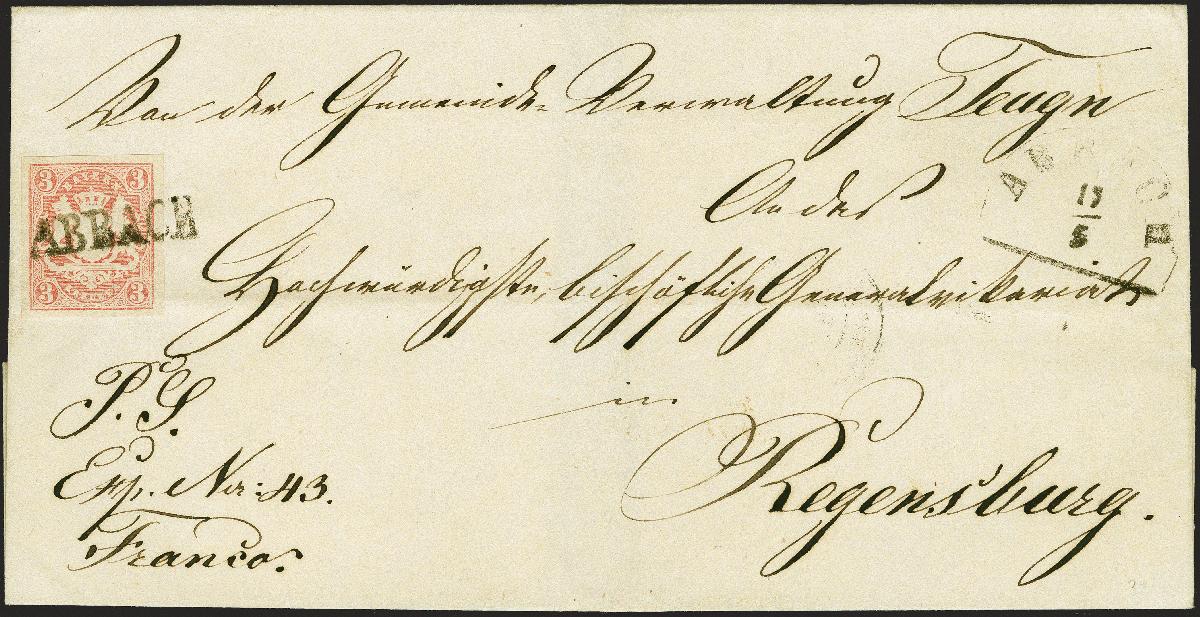 Von der Gemeinde-Verwaltung Teugn
3 3
BAYERN
ABBACH
3 3
AB CH
17
5
An das
Hochwürdigste, bischöfliche Generalvikariat
in
Regensburg.
P. S.
Exp. Nr: 43.
Franco.